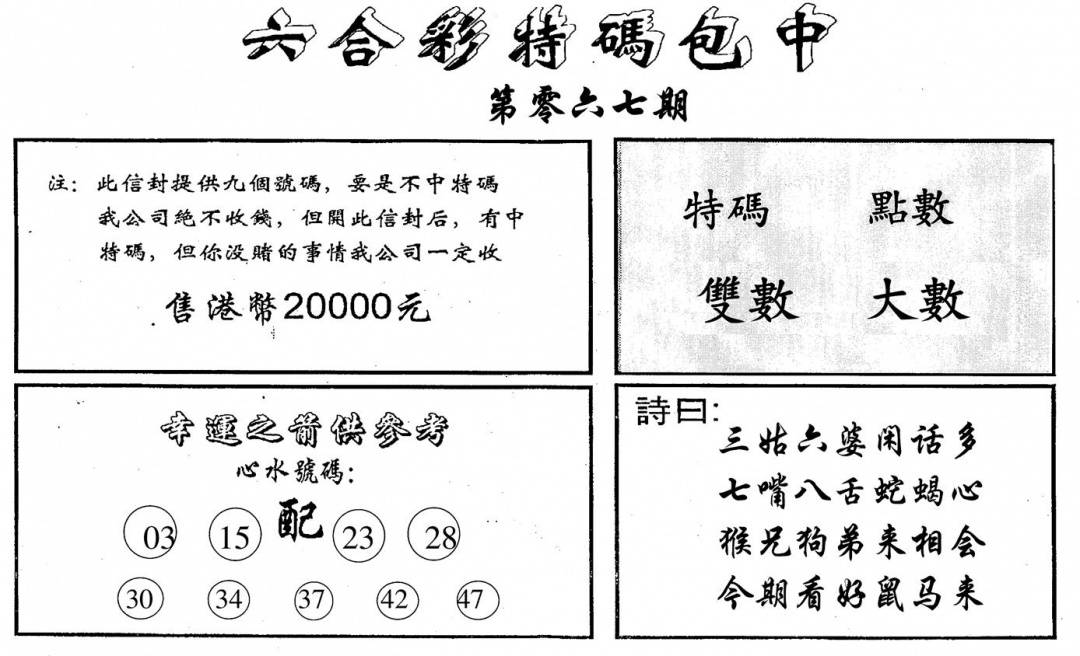 六合彩特碼包中
第零六七期
注：此信封提供九個號碼，要是不中特碼
我公司絕不收錢，但開此信封后，有中
特碼，但你没賭的事情我公司一定收
售港幣20000元
特碼 點數
雙數 大數
幸運之箭供參考
心水號碼：
配
03 15 23 28
30 34 37 42 47
詩曰：
三姑六婆闲话多
七嘴八舌蛇蝎心
猴兄狗弟来相会
今期看好鼠马来